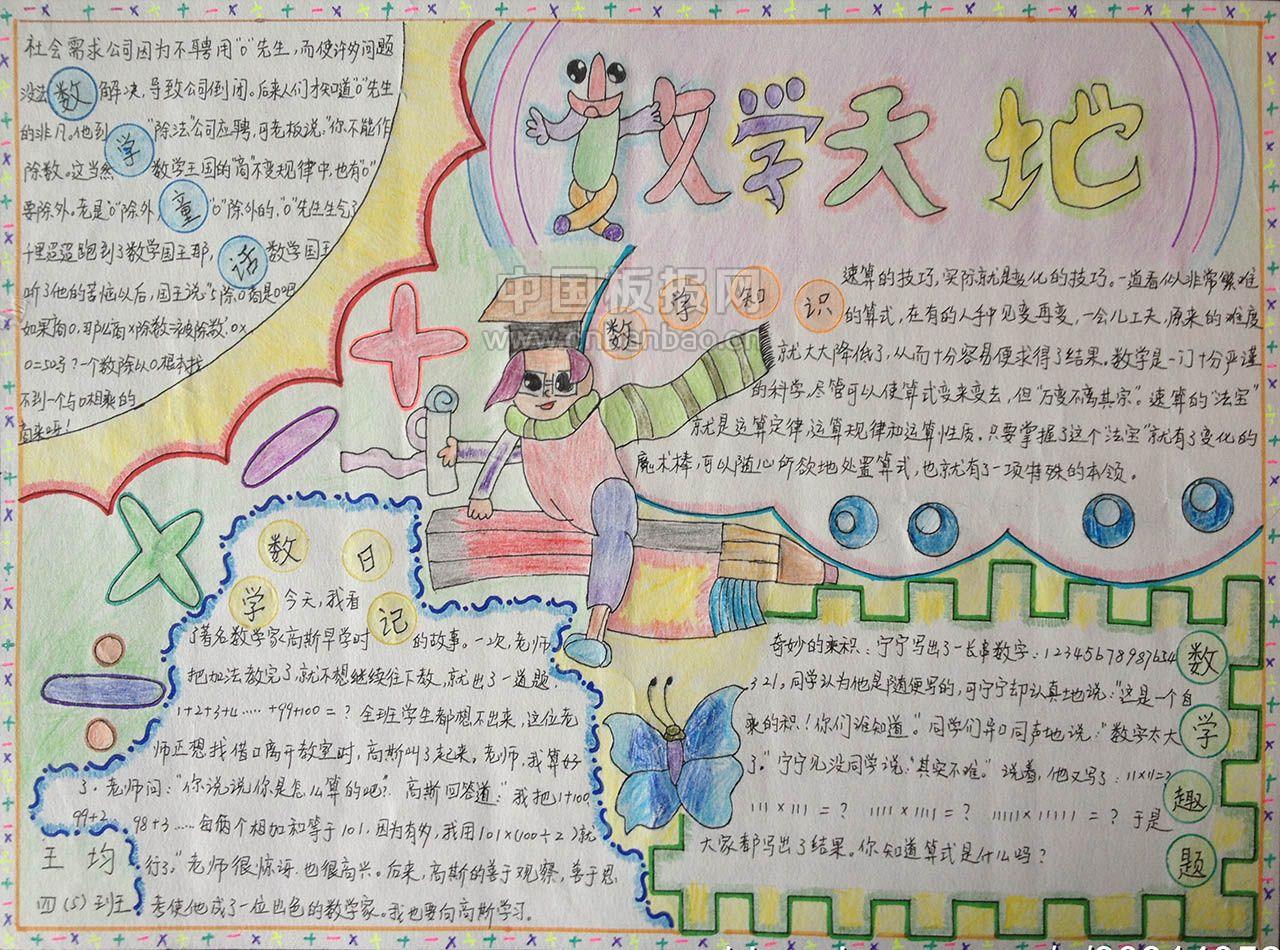 数学天地
社会需求公司因为不聘用"0"先生，而使许多问题
没法解决，导致公司倒闭。后来人们才知道"0"先生
的非凡。他到"除法"公司应聘，可老板说，"你不能作
除数。这当然数学王国的"商"不变规律中，也有"0"
要除外。老是"0"除外，"0"除外的，"0"先生生气了
千里迢迢跑到了数学国王那，数学国王
听了他的苦恼以后，国王说"5除0都是0吧
如果商0，那么商×除数=被除数，0×
0=50吗？一个数除以0根本找
不到一个与0相乘的
商来呀！
数学童话
中国板报网
数学知识
速算的技巧，实际就是变化的技巧。一道看似非常繁难
的算式，在有的人手中见变再变，一会儿工夫，原来的难度
就大大降低了，从而十分容易便求得了结果，数学是一门十分严谨
的科学，尽管可以使算式变来变去，但"万变不离其宗"。速算的"法宝"
就是运算定律，运算规律和运算性质。只要掌握了这个"法宝"就有了变化的
魔术棒，可以随心所欲地处置算式，也就有了一项特殊的本领。
数学日记
今天，我看
了著名数学家高斯早学时的故事。一次，老师
把加法教完了，就不想继续往下教，就出了一道题，
1+2+3+4……+99+100=？全班学生都想不出来，这位老
师正想找借口离开教室时，高斯叫了起来，老师，我算好
了。老师问："你说说你是怎么算的吧？"高斯回答道："我把1+100，
99+2 98+3……每俩个相加和等于101，因为有多，我用101×(100÷2)就
行了。"老师很惊讶也很高兴。后来，高斯的善于观察，善于思
考使他成了一位出色的数学家。我也要向高斯学习。
王均
四(5)班
数学趣题
奇妙的乘积：宁宁写出了一长串数字：12345678987654
321，同学认为他是随便写的，可宁宁却认真地说："这是一个自
乘的积！你们谁知道。"同学们异口同声地说："数字太大
了。"宁宁见没同学说："其实不难。"说着，他又写了：11×11=?
111×111=？ 1111×1111=？ 11111×11111=？于是
大家都写出了结果。你知道算式是什么吗？